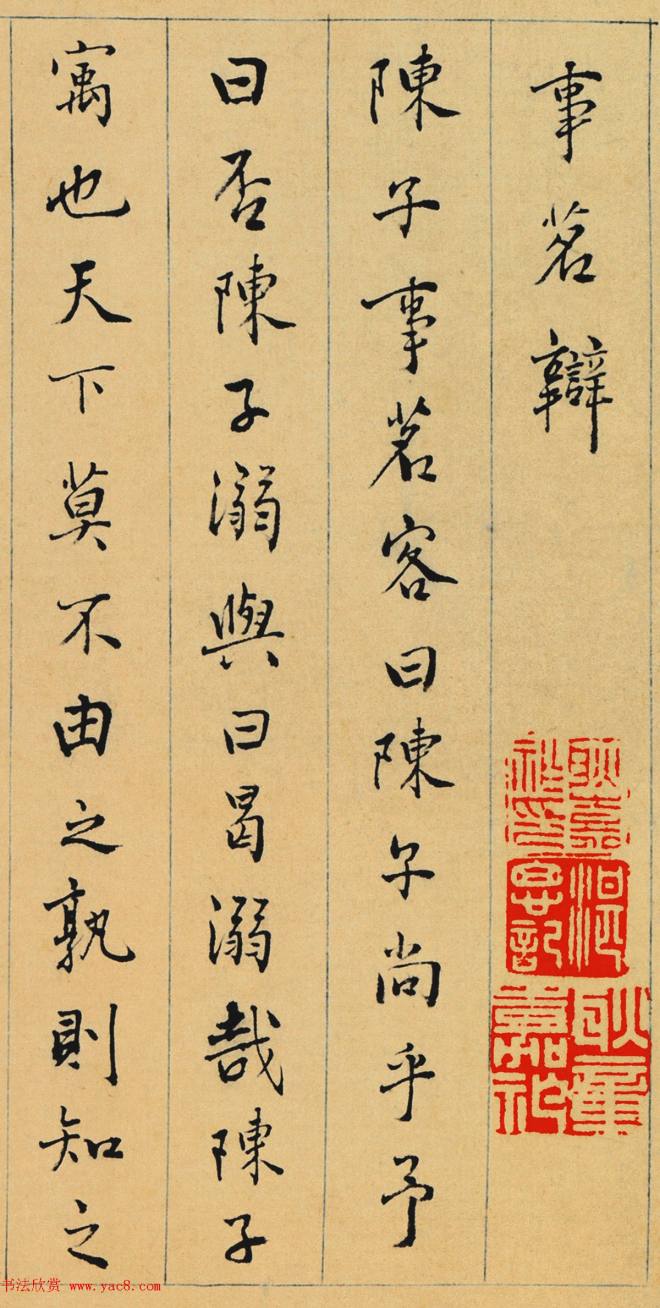 事茗辯
陳子事茗客曰陳子尚乎予
曰否陳子溺與曰曷溺哉陳子
寓也天下莫不由之孰則知之
書法欣赏 www.yac8.com